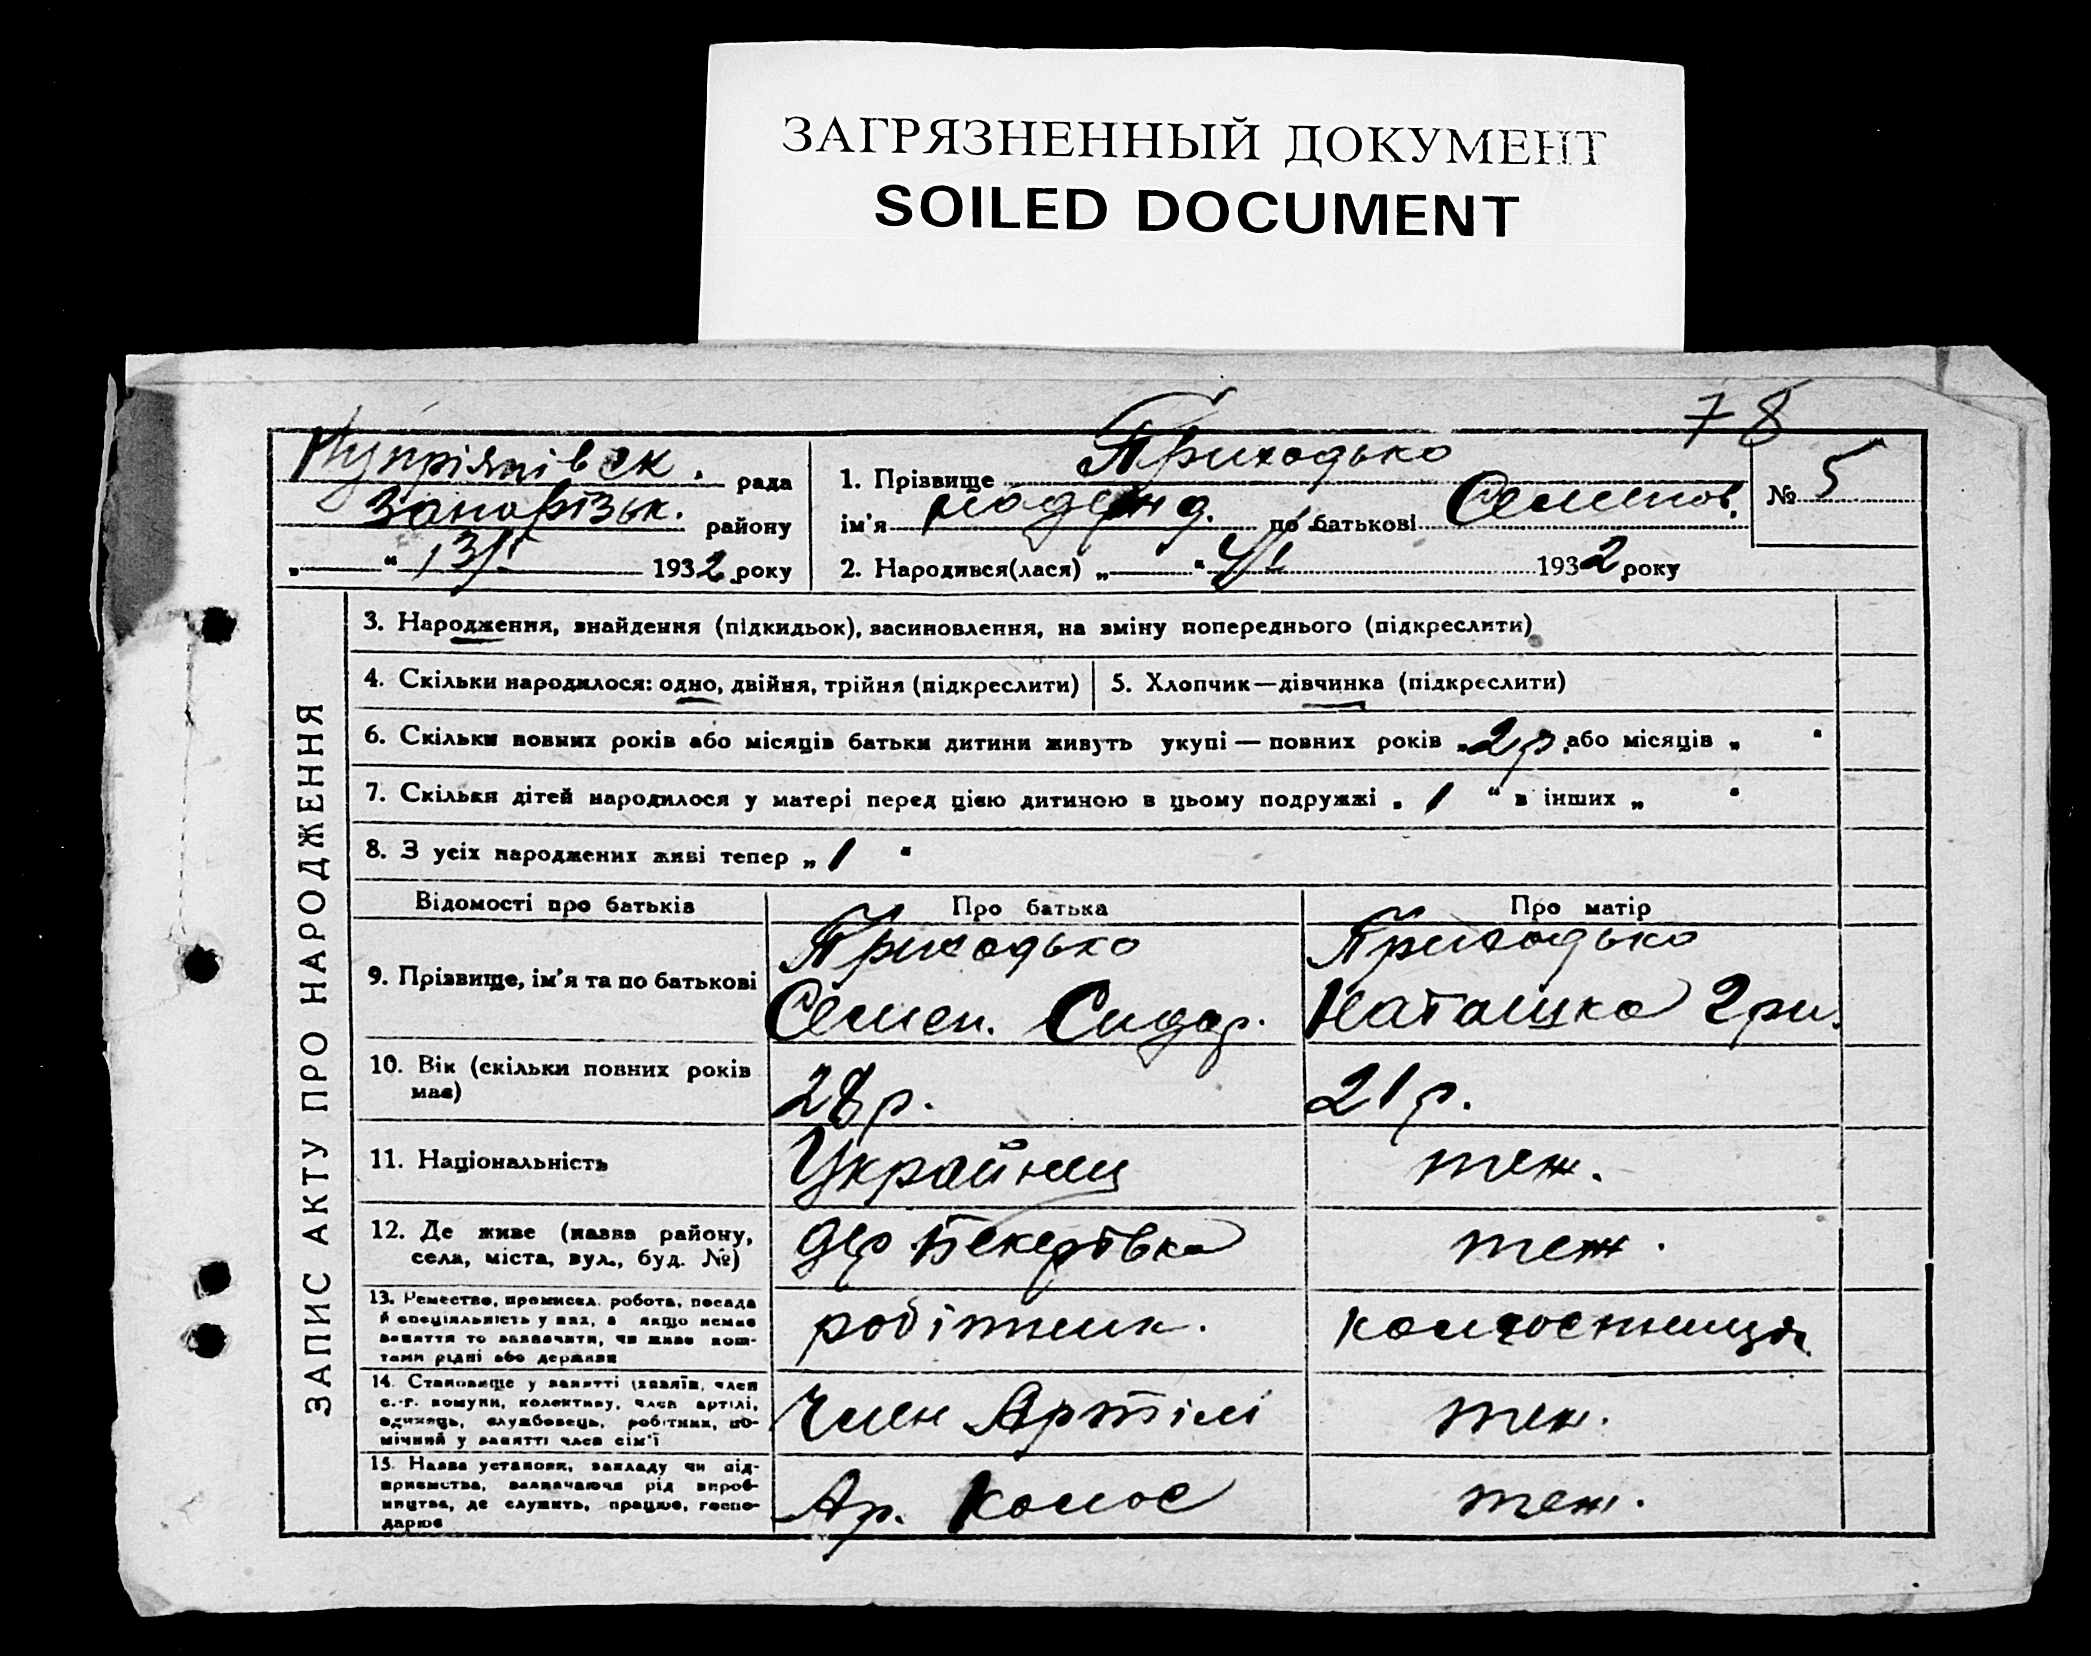 ЗАГРЯЗНЕННЫЙ ДОКУМЕНТ
SOILED DOCUMENT
78
Купріянівськ. рада
Запорізьк. району
„ “ 13/I 1932 року
1. Прізвище Приходько
ім'я по батькові Семенов.
2. Народився(лася) „ “ 4/I 1932 року
№ 5
ЗАПИС АКТУ ПРО НАРОДЖЕННЯ
3. Народження, знайдення (підкидьок), засиновлення, на зміну попереднього (підкреслити)
4. Скільки народилося: одно, двійня, трійня (підкреслити)
5. Хлопчик—дівчинка (підкреслити)
6. Скільки повних років або місяців батьки дитини живуть укупі — повних років „ 2 р. або місяців „ “
7. Скільки дітей народилося у матері перед цією дитиною в цьому подружжі „ 1 “ в інших „ “
8. З усіх народжених живі тепер „ 1 “
Відомості про батьків
Про батька
Про матір
9. Прізвище, ім'я та по батькові
Приходько
Семен. Сидор.
Приходько
Наташка Гри.
10. Вік (скільки повних років
має)
28 р.
21 р.
11. Національність
Українец
теж.
12. Де живе (назва району,
села, міста, вул., буд. №)
дер
теж.
13. Ремество, промисел, робота, посада
й спеціяльність у них, а якщо немає
заняття то зазначити, чи живе кош-
тами рідні або держави
робітник.
колгоспниця
14. Становище у занятті (хазяїн, член
с.-г. комуни, колективу, член артілі,
одинець, службовець, робітник, по-
мічний у занятті член сім'ї
Член Артілі
теж.
15. Назва установи, закладу чи під-
приємства, зазначаючи рід вироб-
ництва, де служить, працює, госпо-
дарює
Ар. Колос
теж.